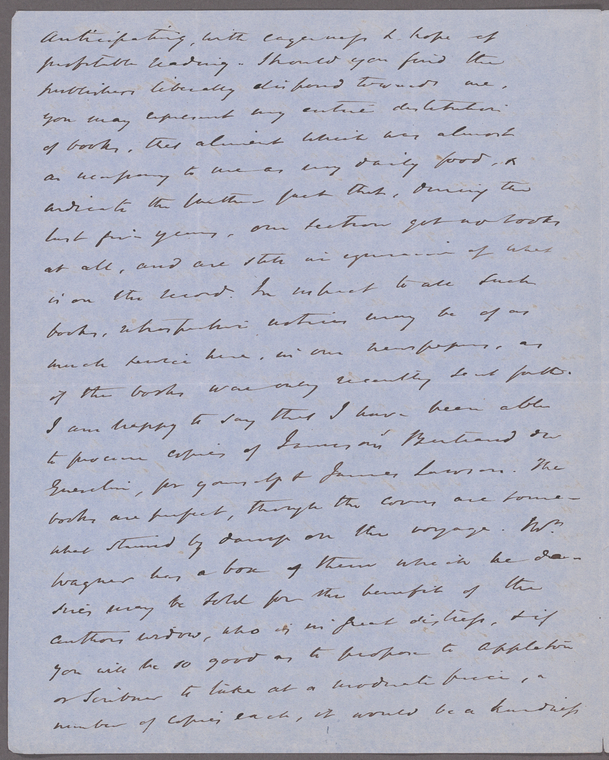 anticipating, with eagerness & hope of
profitable reading. Should you find the
publishers liberally disposed towards me,
you may represent my entire destitution
of books, that aliment which was almost
as necessary to me as my daily food, &
indicate the further fact that, during the
last five years, our section got no books
at all, and are still in ignorance of what
is on the record. In respect to all such
books, retrospective notices may be of as
much service here, in our newspapers, as
if the books were only recently sent forth.
I am happy to say that I have been able
to procure copies of Jamison's Bertrand du
Guesclin, for yourself & James Lawson. The
books are perfect, though the covers are some-
what stained by damp on the voyage. Mr.
Wagner has a box of them which he de-
sires may be sold for the benefit of the
authors widow, who is in great distress, & if
you will be so good as to propose to Appleton
or Scribner to take at a moderate price, a
number of copies each, it would be a kindness